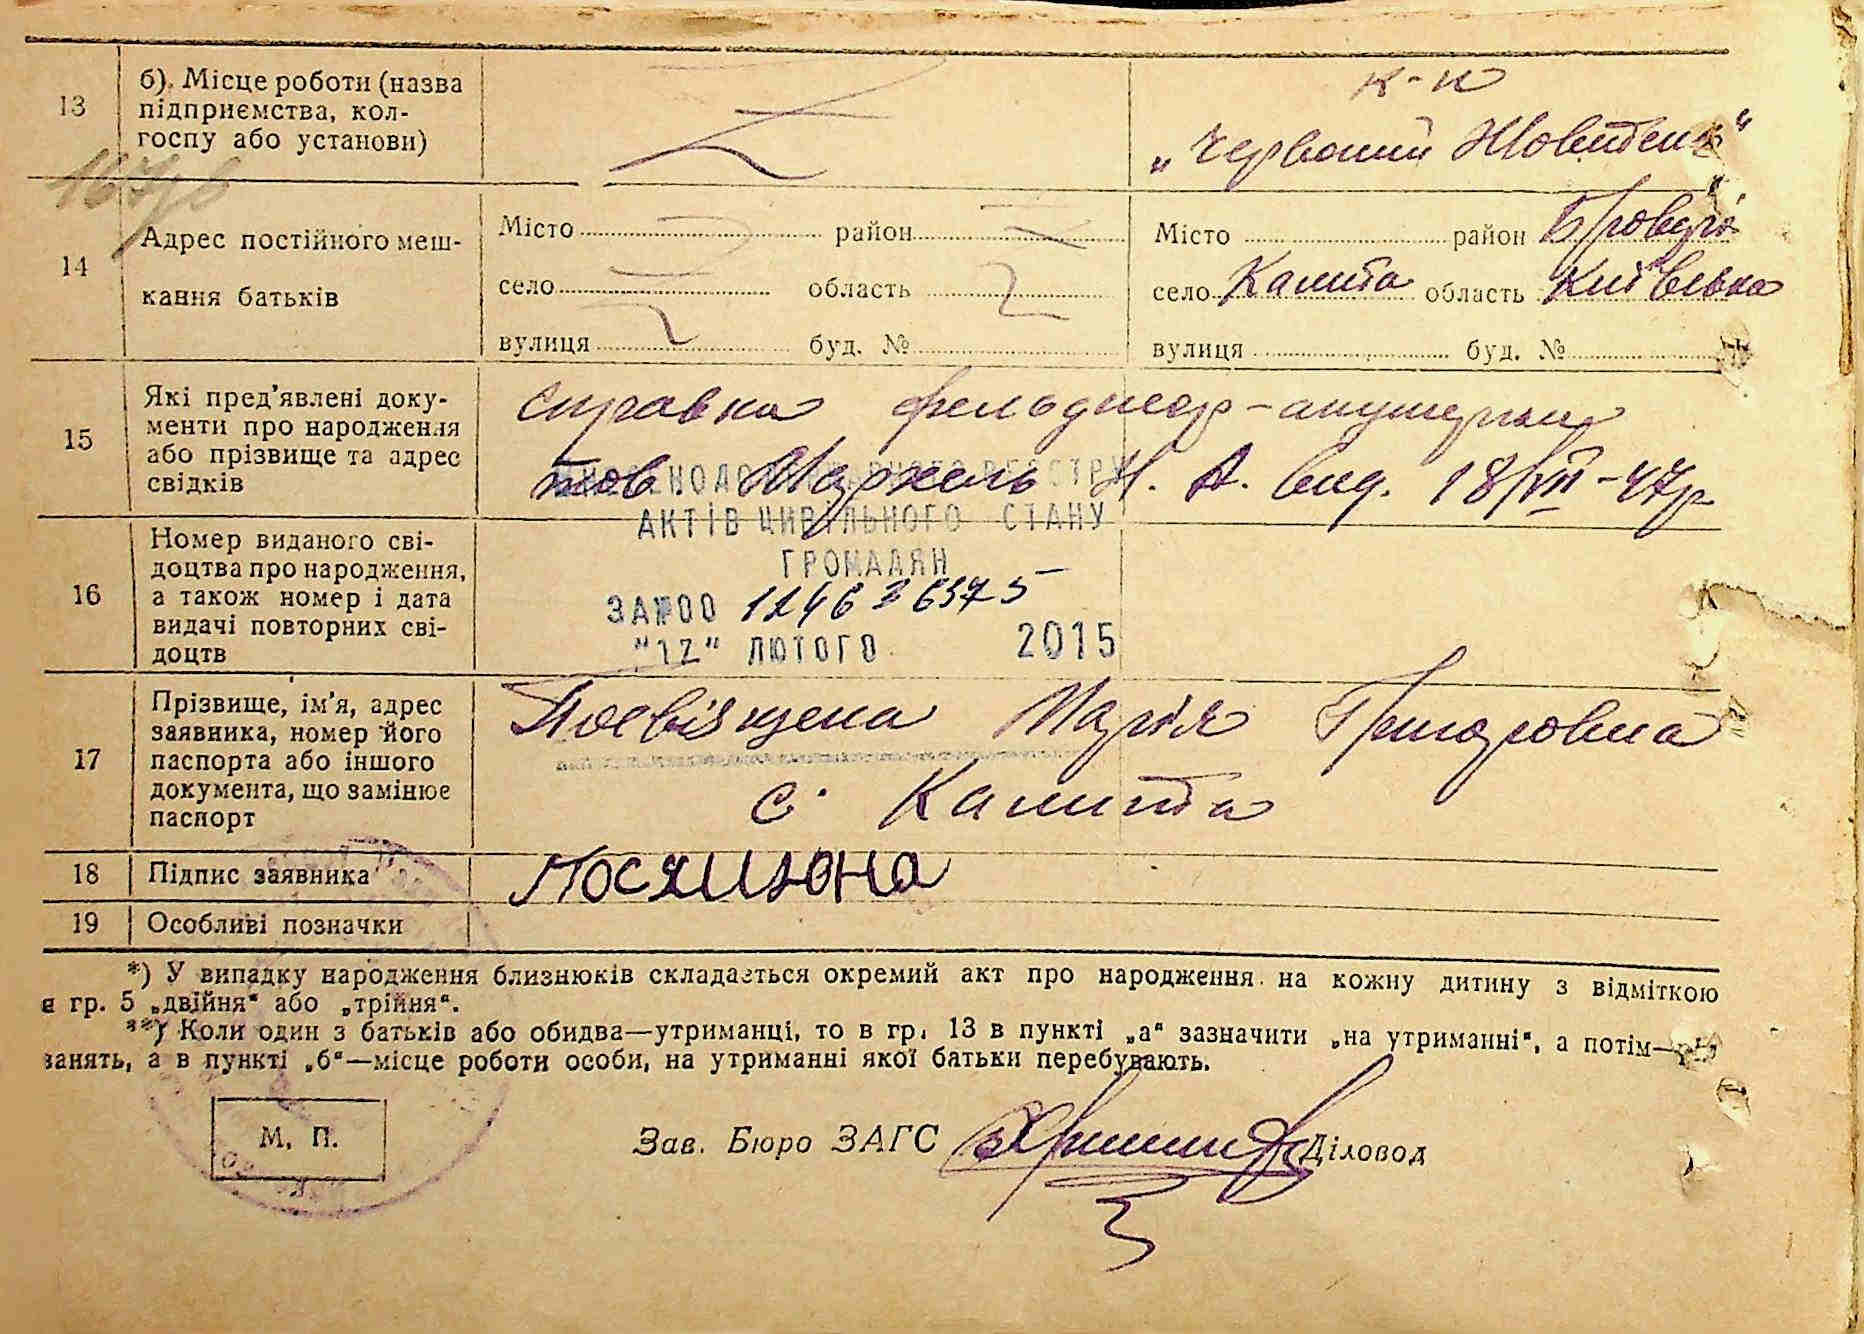 13 б). Місце роботи (назва
підприємства, кол-
госпу або установи)
к-п
„Червоний Жовтень"
14 Адрес постійного меш-
кання батьків
Місто район Місто район Бровері
село область село Калита область Київська
вулиця буд. № вулиця буд. №
15 Які пред'явлені доку-
менти про народження
або прізвище та адрес
свідків
справка фельдшер-акушерки
тов. Н. А. вид. 18/VIII-47р
АКТІВ ЦИВІЛЬНОГО СТАНУ
ГРОМАДЯН
ЗА №00
"12" ЛЮТОГО 2015
16 Номер виданого сві-
доцтва про народження,
а також номер і дата
видачі повторних сві-
доцтв
17 Прізвище, ім'я, адрес
заявника, номер його
паспорта або іншого
документа, що замінює
паспорт
Посвящена Марія Григоровна
с. Калита
18 Підпис заявника
19 Особливі позначки
*) У випадку народження близнюків складається окремий акт про народження на кожну дитину з відміткою
в гр. 5 „двійня" або „трійня".
**) Коли один з батьків або обидва—утриманці, то в гр. 13 в пункті „а" зазначити „на утриманні", а потім—
занять, а в пункті „б"—місце роботи особи, на утриманні якої батьки перебувають.
М. П.
Зав. Бюро ЗАГС Діловод